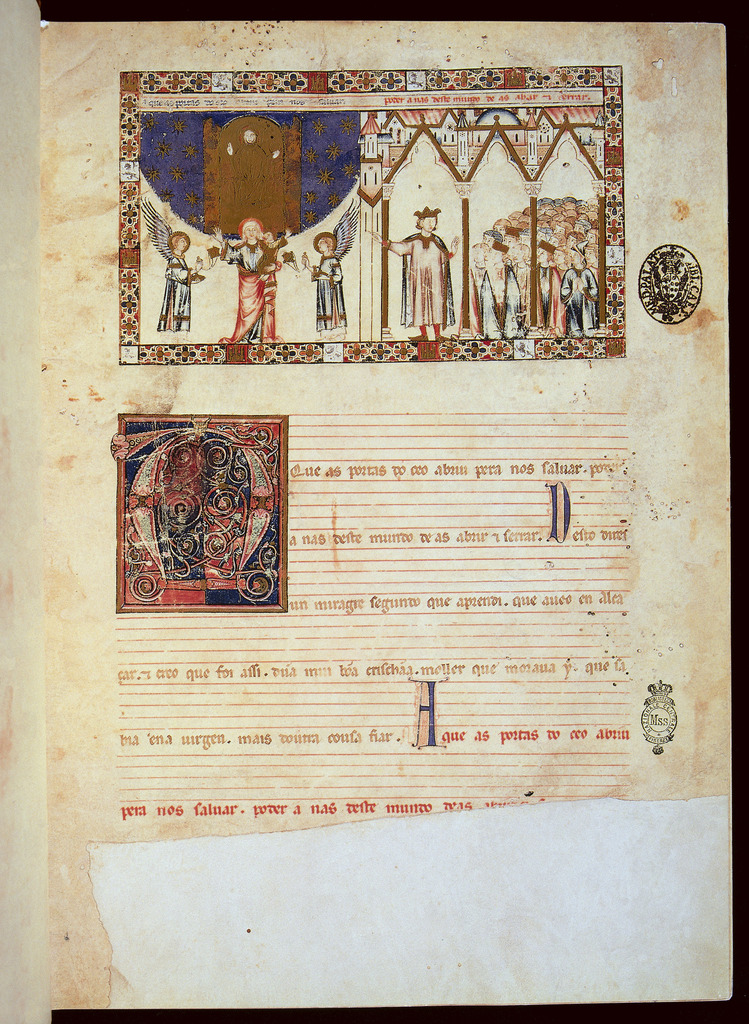 poder a nas deste mundo de as abrir ⁊ serrar.
Que as portas do ceo abriu pera nos saluar. poder
a nas deste mundo de as abrir ⁊ serrar. Desto direi
un miragre segundo que aprendi. que aueo en alca
çar. ⁊ creo que foi assi. dũa mui bõa crischãa moller que moraua y. que sa
bia ena uirgen. mais doutra cousa fiar. A que as portas do ceo abriu
pera nos saluar. poder a nas deste mundo deas
Mss